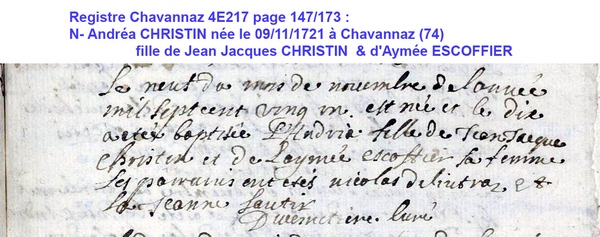 Registre Chavannaz 4E217 page 147/173 :
N- Andréa CHRISTIN née le 09/11/1721 à Chavannaz (74)
fille de Jean Jacques CHRISTIN & d'Aymée ESCOFFIER
Le neuf du mois de novembre de l'année
mil sept cent ving un est née et le dix
a etez baptisée fille de Jean Jacque
Christin et de Laymée escoffier sa femme
ses parrains ont etés nicolas et
La Jeanne
curé